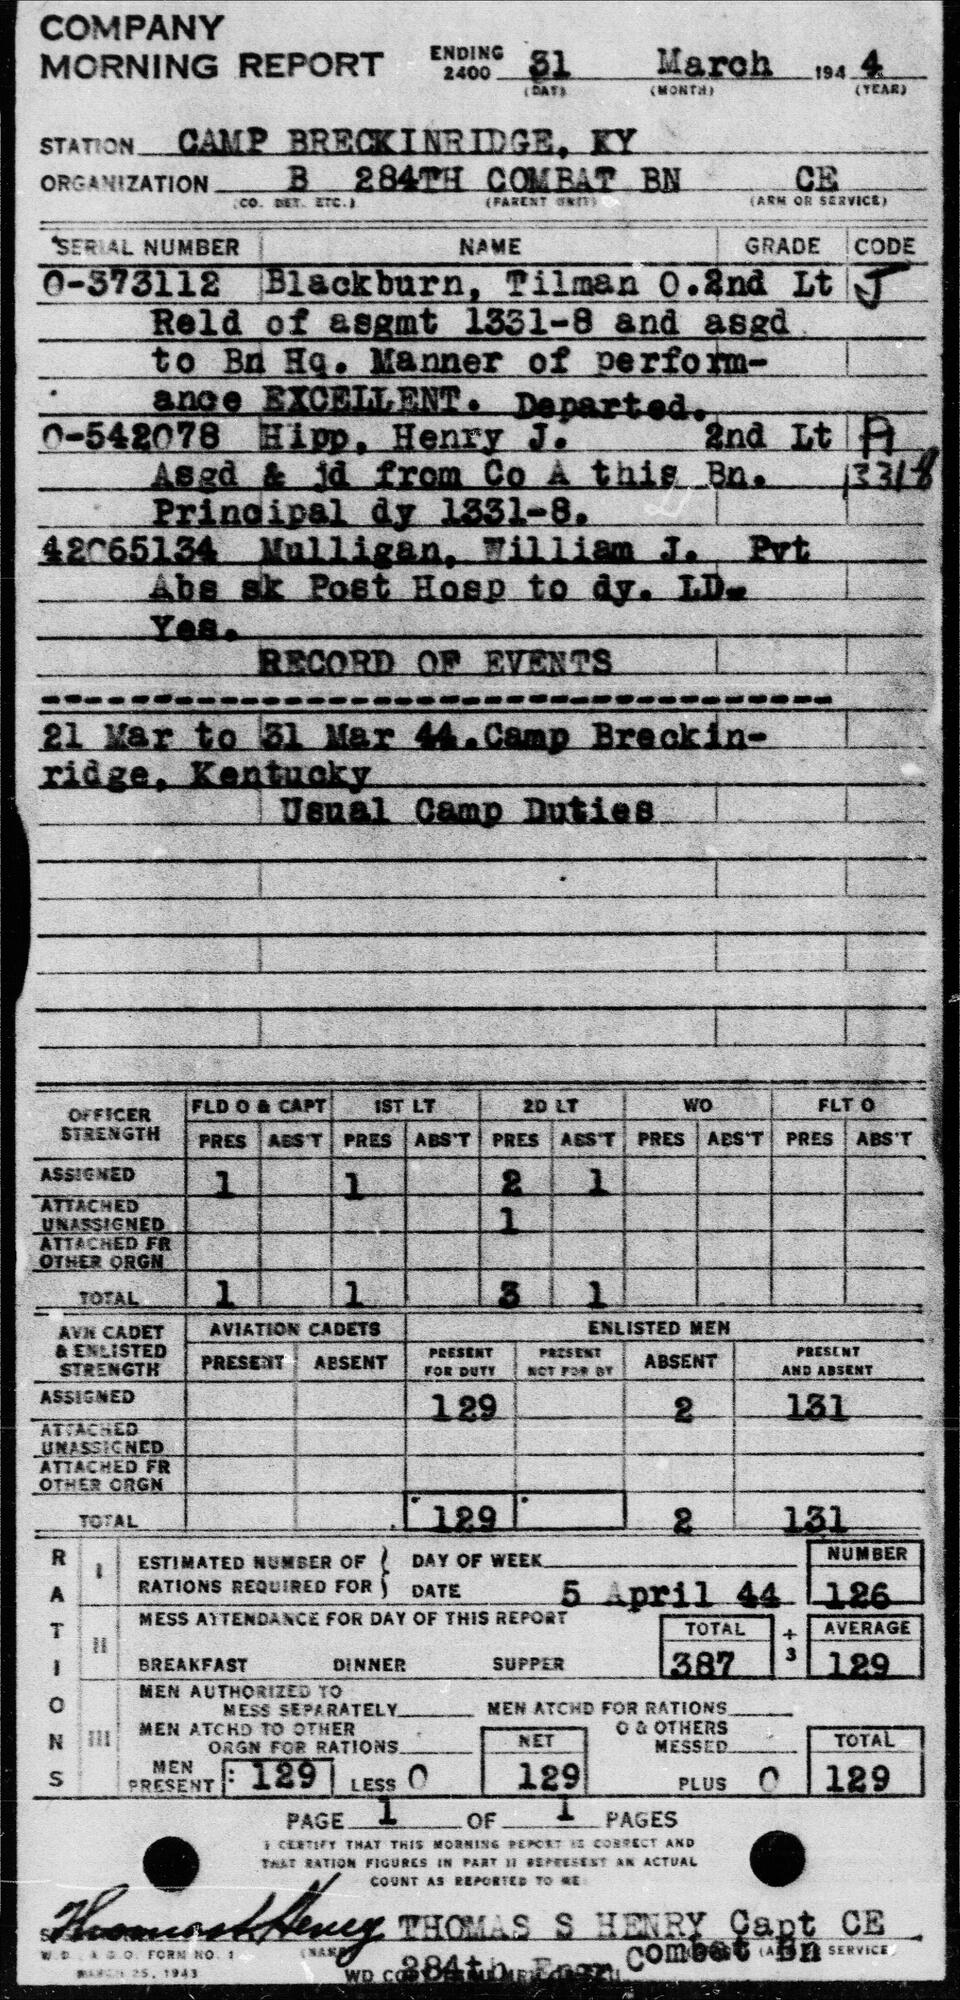 COMPANY
MORNING REPORT ENDING 2400 31 March 194 4
(DAY) (MONTH) (YEAR)
STATION CAMP BRECKINRIDGE, KY
ORGANIZATION B 284TH COMBAT BN CE
(CO. DET. ETC.) (PARENT UNIT) (ARM OR SERVICE)
SERIAL NUMBER NAME GRADE CODE
O-373112 Blackburn, Tilman O. 2nd Lt J
Reld of asgmt 1331-8 and asgd
to Bn Hq. Manner of perform-
ance EXCELLENT. Departed.
O-542078 Hipp, Henry J. 2nd Lt A
Asgd & jd from Co A this Bn. 1331-8
Principal dy 1331-8.
42065134 Mulligan, William J. Pvt
Abs sk Post Hosp to dy. LD-
Yes.
RECORD OF EVENTS
21 Mar to 31 Mar 44. Camp Breckin-
ridge, Kentucky
Usual Camp Duties
OFFICER STRENGTH FLD O & CAPT 1ST LT 2D LT WO FLT O
PRES ABS'T PRES ABS'T PRES ABS'T PRES ABS'T PRES ABS'T
ASSIGNED 1 1 2 1
ATTACHED UNASSIGNED 1
ATTACHED FR OTHER ORGN
TOTAL 1 1 3 1
AVN CADET & ENLISTED STRENGTH AVIATION CADETS ENLISTED MEN
PRESENT ABSENT PRESENT FOR DUTY PRESENT NOT FOR DY ABSENT PRESENT AND ABSENT
ASSIGNED 129 2 131
ATTACHED UNASSIGNED
ATTACHED FR OTHER ORGN
TOTAL 129 2 131
RATIONS
I ESTIMATED NUMBER OF RATIONS REQUIRED FOR DAY OF WEEK NUMBER
DATE 5 April 44 126
II MESS ATTENDANCE FOR DAY OF THIS REPORT TOTAL ÷ 3 AVERAGE
BREAKFAST DINNER SUPPER 387 129
III MEN AUTHORIZED TO MESS SEPARATELY MEN ATCHD FOR RATIONS
MEN ATCHD TO OTHER ORGN FOR RATIONS NET O & OTHERS MESSED TOTAL
MEN PRESENT 129 LESS 0 129 PLUS 0 129
PAGE 1 OF 1 PAGES
I CERTIFY THAT THIS MORNING REPORT IS CORRECT AND
THAT RATION FIGURES IN PART II REPRESENT AN ACTUAL
COUNT AS REPORTED TO ME
Thomas S Henry THOMAS S HENRY Capt CE
W. D., A. G. O. FORM NO. 1 (NAME) SERVICE)
MARCH 25, 1943 284th Engr Combat Bn